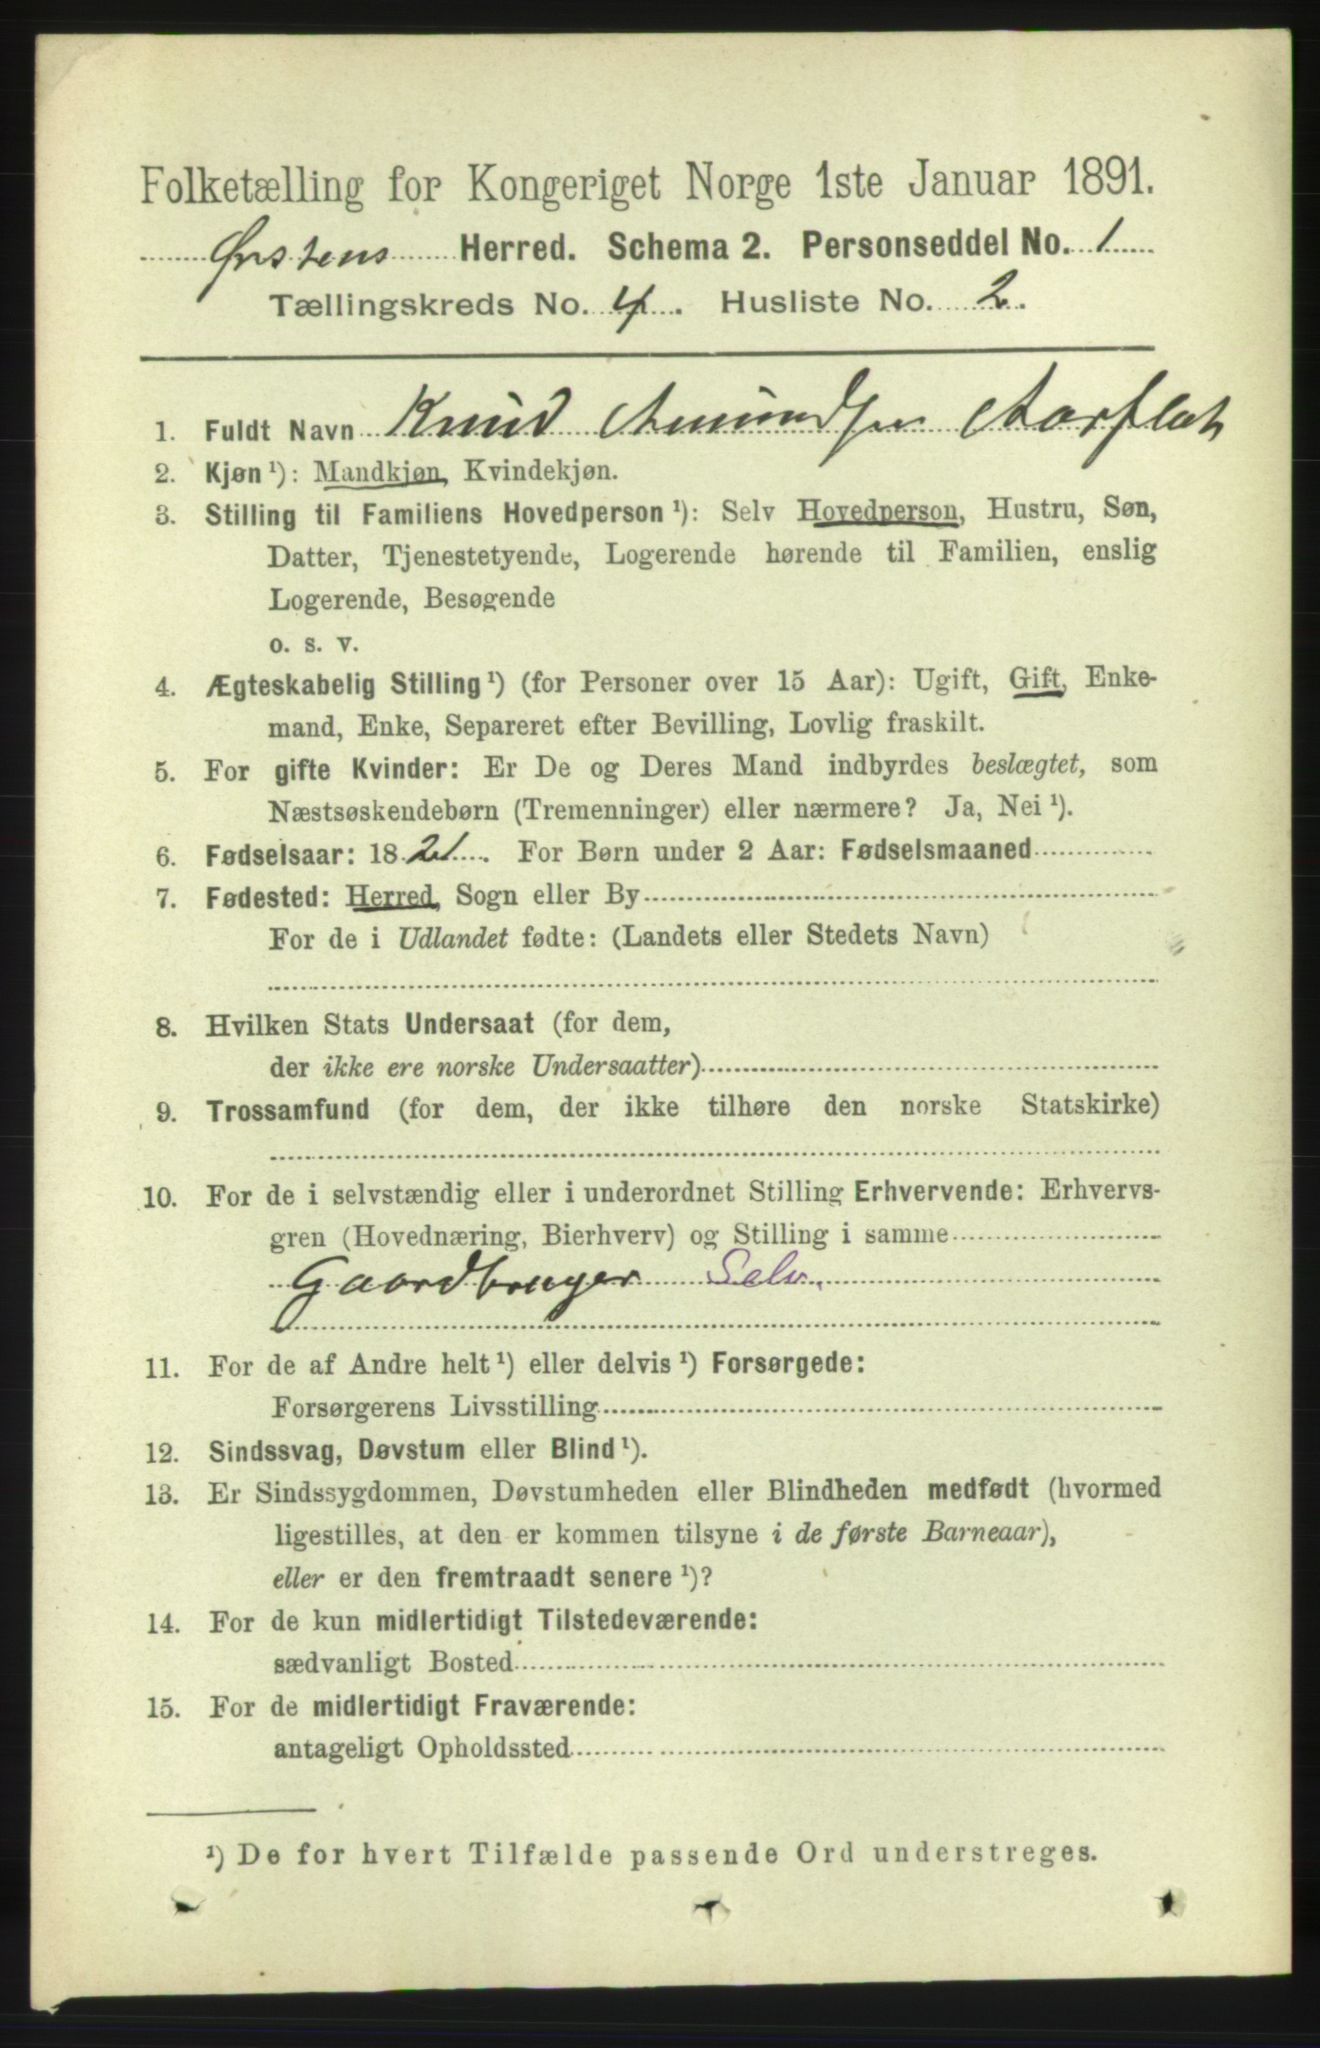 Folketælling for Kongeriget Norge 1ste Januar 1891.
Ørstens Herred. Schema 2. Personseddel No. 1
Tællingskreds No. 4. Husliste No. 2.
1. Fuldt Navn Knud Amundsen Aarflot
2. Kjøn ¹): Mandkjøn, Kvindekjøn.
3. Stilling til Familiens Hovedperson ¹): Selv Hovedperson, Hustru, Søn,
Datter, Tjenestetyende, Logerende hørende til Familien, enslig
Logerende, Besøgende
o. s. v.
4. Ægteskabelig Stilling ¹) (for Personer over 15 Aar): Ugift, Gift, Enke-
mand, Enke, Separeret efter Bevilling, Lovlig fraskilt.
5. For gifte Kvinder: Er De og Deres Mand indbyrdes beslægtet, som
Næstsøskendebørn (Tremenninger) eller nærmere? Ja, Nei ¹).
6. Fødselsaar: 1821. For Børn under 2 Aar: Fødselsmaaned
7. Fødested: Herred, Sogn eller By
For de i Udlandet fødte: (Landets eller Stedets Navn)
8. Hvilken Stats Undersaat (for dem,
der ikke ere norske Undersaatter)
9. Trossamfund (for dem, der ikke tilhøre den norske Statskirke)
10. For de i selvstændig eller i underordnet Stilling Erhvervende: Erhvervs-
gren (Hovednæring, Bierhverv) og Stilling i samme
Gaardbruger Selv.
11. For de af Andre helt ¹) eller delvis ¹) Forsørgede:
Forsørgerens Livsstilling
12. Sindssvag, Døvstum eller Blind ¹).
13. Er Sindssygdommen, Døvstumheden eller Blindheden medfødt (hvormed
ligestilles, at den er kommen tilsyne i de første Barneaar),
eller er den fremtraadt senere ¹)?
14. For de kun midlertidigt Tilstedeværende:
sædvanligt Bosted
15. For de midlertidigt Fraværende:
antageligt Opholdssted
¹) De for hvert Tilfælde passende Ord understreges.